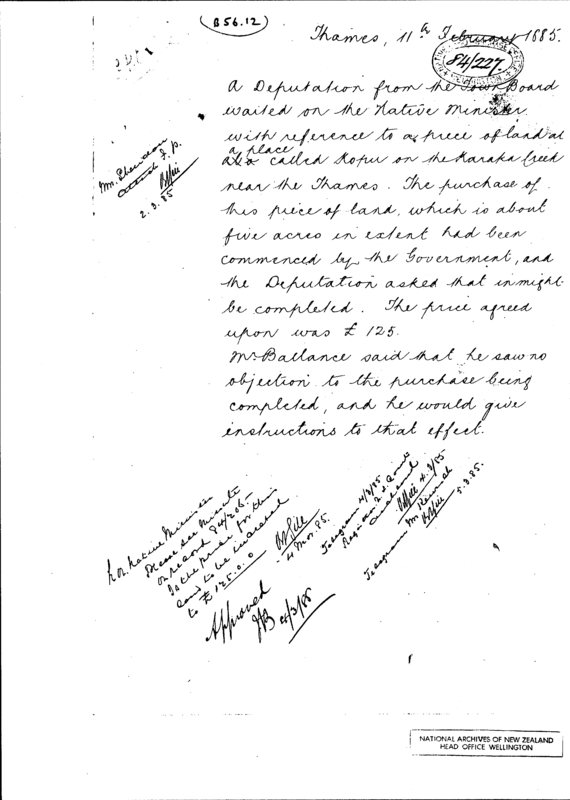 (B56.12)
Thames, 11th February 1885.
84/227.
A Deputation from the Town Board
waited on the Native Minister
with reference to a piece of land at
a place
called Kopu on the Karaka Creek
near the Thames. The purchase of
this piece of land, which is about
five acres in extent had been
commenced by the Government, and
the Deputation asked that it might
be completed. The price agreed
upon was £125.
Mr Ballance said that he saw no
objection to the purchase being
completed, and he would give
instructions to that effect.
Mr. Sheridan
2.3.85
Hon Native Minister
Please see minute
on record 84/206.
Is the price for this
land to be increased
to £125.0.0
4 Mar. 85.
Approved
JB 4/3/85
Telegram 4/3/85
Auckland
4.3/85
Telegram Mr
5.3.85.
NATIONAL ARCHIVES OF NEW ZEALAND
HEAD OFFICE WELLINGTON